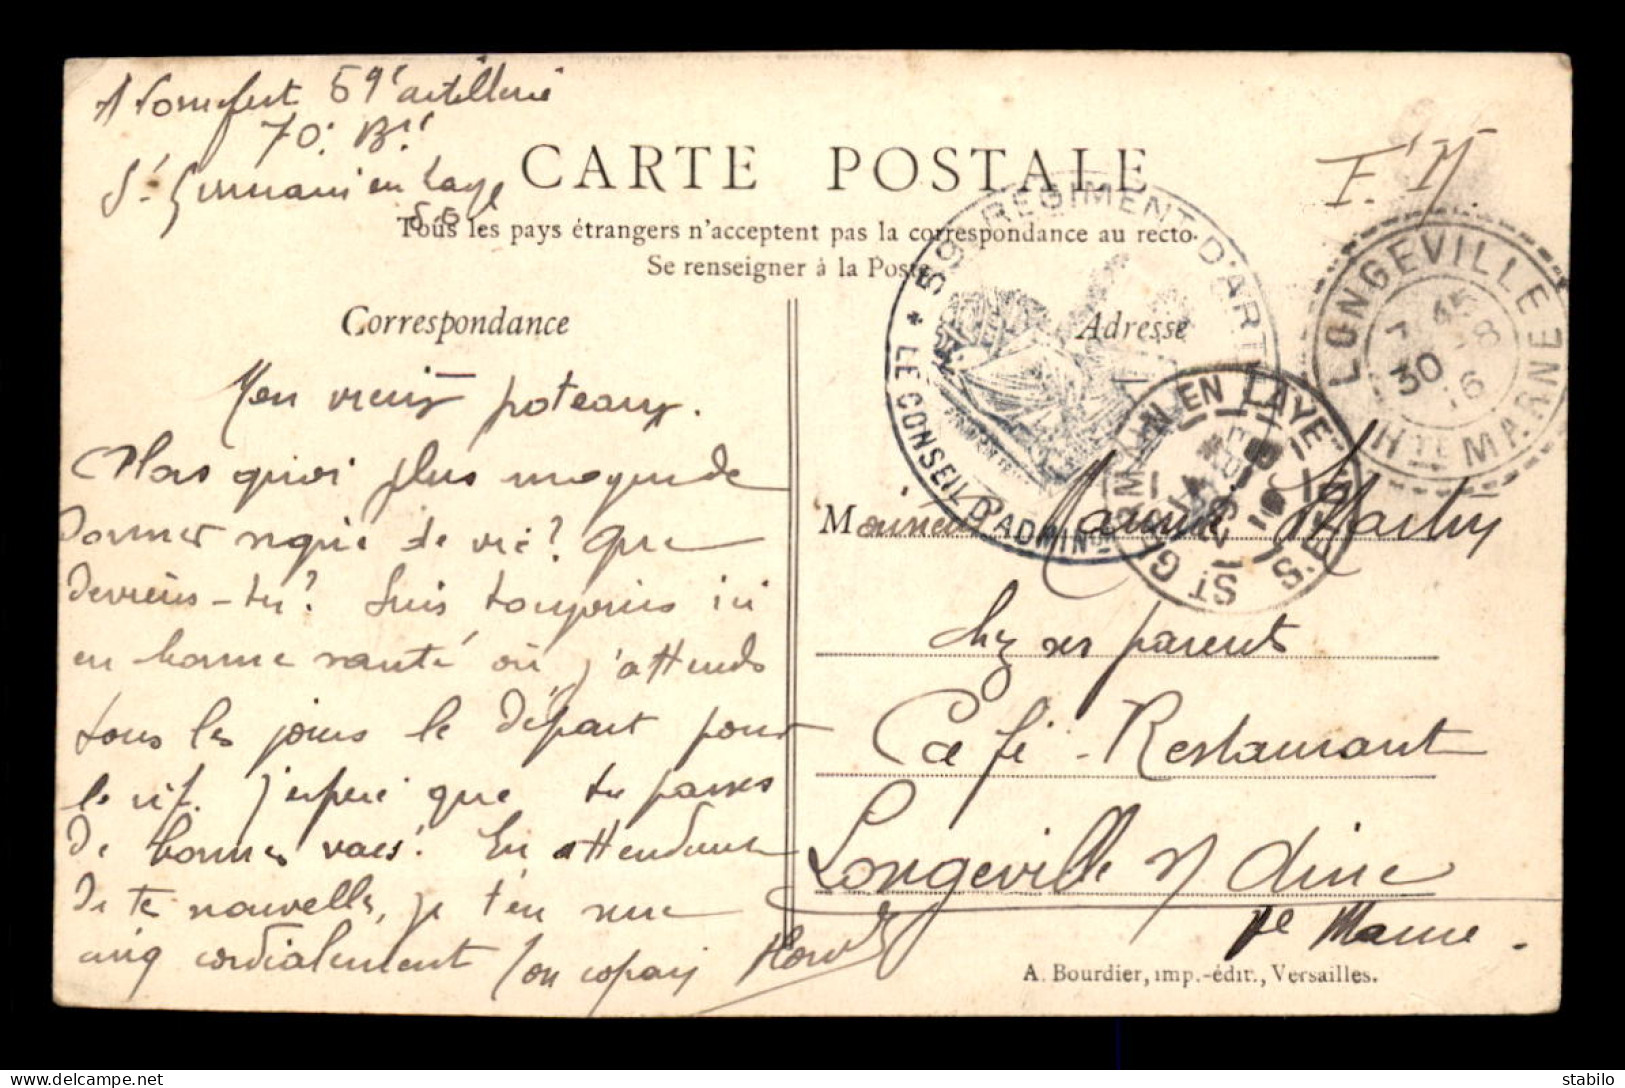 59e artillerie
70e Bie
St Germain en Laye
S. O
CARTE POSTALE
F. M.
Tous les pays étrangers n'acceptent pas la correspondance au recto.
Se renseigner à la Poste
59e REGIMENT D'ARTIE
* LE CONSEIL D'ADMINon
LONGEVILLE
7 45
30 -8
16
Hte MARNE
ST GERMAIN EN LAYE
S.-&-O.
Correspondance
Adresse
Mon vieux poteaux.
Alors quoi plus moyen de
donner signe de vie? Que
deviens-tu? Suis toujours ici
en bonne santé où j'attends
tous les jours le départ pour
le rif. j'espère que tu passes
de bonnes vacs. En attendant
de tes nouvelles, je t'en serre
cinq cordialement ton copain
Monsieur Maurice Martin
chez ses parents
Café-Restaurant
Longeville s/ Aine
Hte Marne.
A. Bourdier, imp.-édit., Versailles.
stabilo